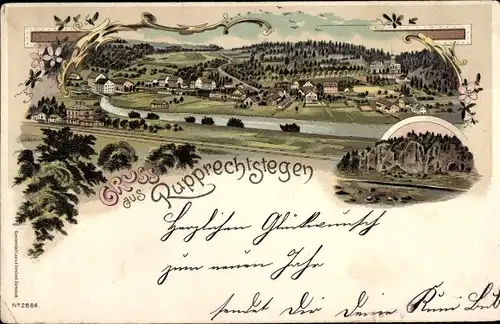 Gruss
aus
Rupprechtstegen
Herzlichen Glückwunsch
zum neuen Jahr
sendet Dir Deine
No 2684.